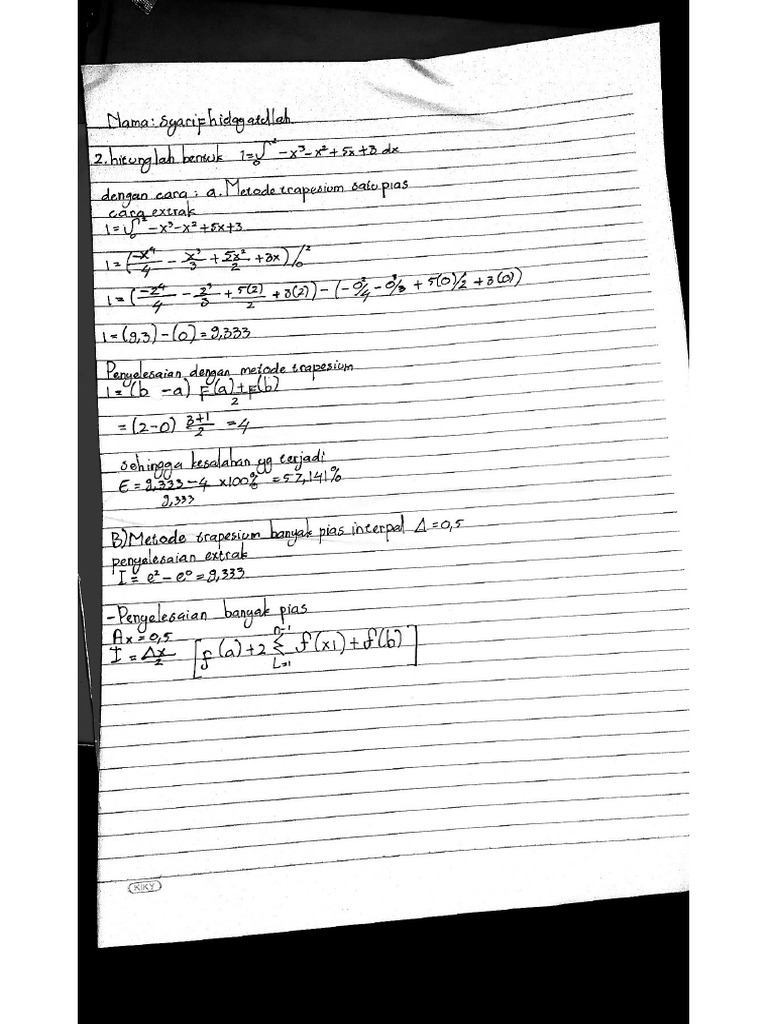 Nama: Syarif hidayatullah
2. hitunglah bentuk I=₀∫² -x³-x²+5x+3 dx
dengan cara : a. Metode trapesium satu pias
cara extrak
I=₀∫² -x³-x²+5x+3
I=(-x⁴/4 - x³/3 + 5x²/2 + 3x)/₀²
I=(-2⁴/4 - 2³/3 + 5(2)/2 + 3(2)) - (-0³/4 - 0³/3 + 5(0)/2 + 3(0))
I=(9,3)-(0)=9,333
Penyelesaian dengan metode trapesium
I=(b -a) F(a)+F(b)/2
=(2-0) 3+1/2 =4
sehingga kesalahan yg terjadi
E = 9,333-4/9,333 x100% =57,141%
B) Metode trapesium banyak pias interpal Δ=0,5
penyelesaian extrak
I = e²-e⁰=9,333
-Penyelesaian banyak pias
Ax=0,5
I = Δx/2 [f(a)+2 Σ f(x1)+f(b)]
n-1
L=1
KIKY